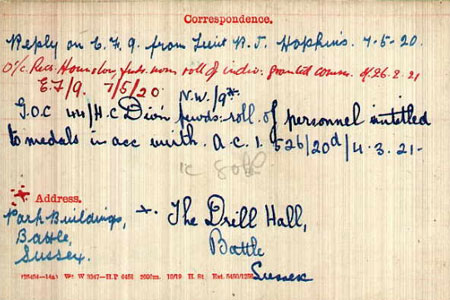 Correspondence.
Reply on E.F.9. from Lieut R.J. Hopkins. 7-5-20.
O/c. Rec. Hounslow fwds. nom roll of indiv. granted comms. d/26.2.21
E.F/9. 7/5/20 N.W./9*.
G.O.C 44/H.C Divn fwds. roll of personnel entitled
to medals in acc with. A.C.I. 526/20 d/4.3.21-
Address.
Park Buildings,
Battle,
Sussex.
The Drill Hall,
Battle
Sussex
H. St